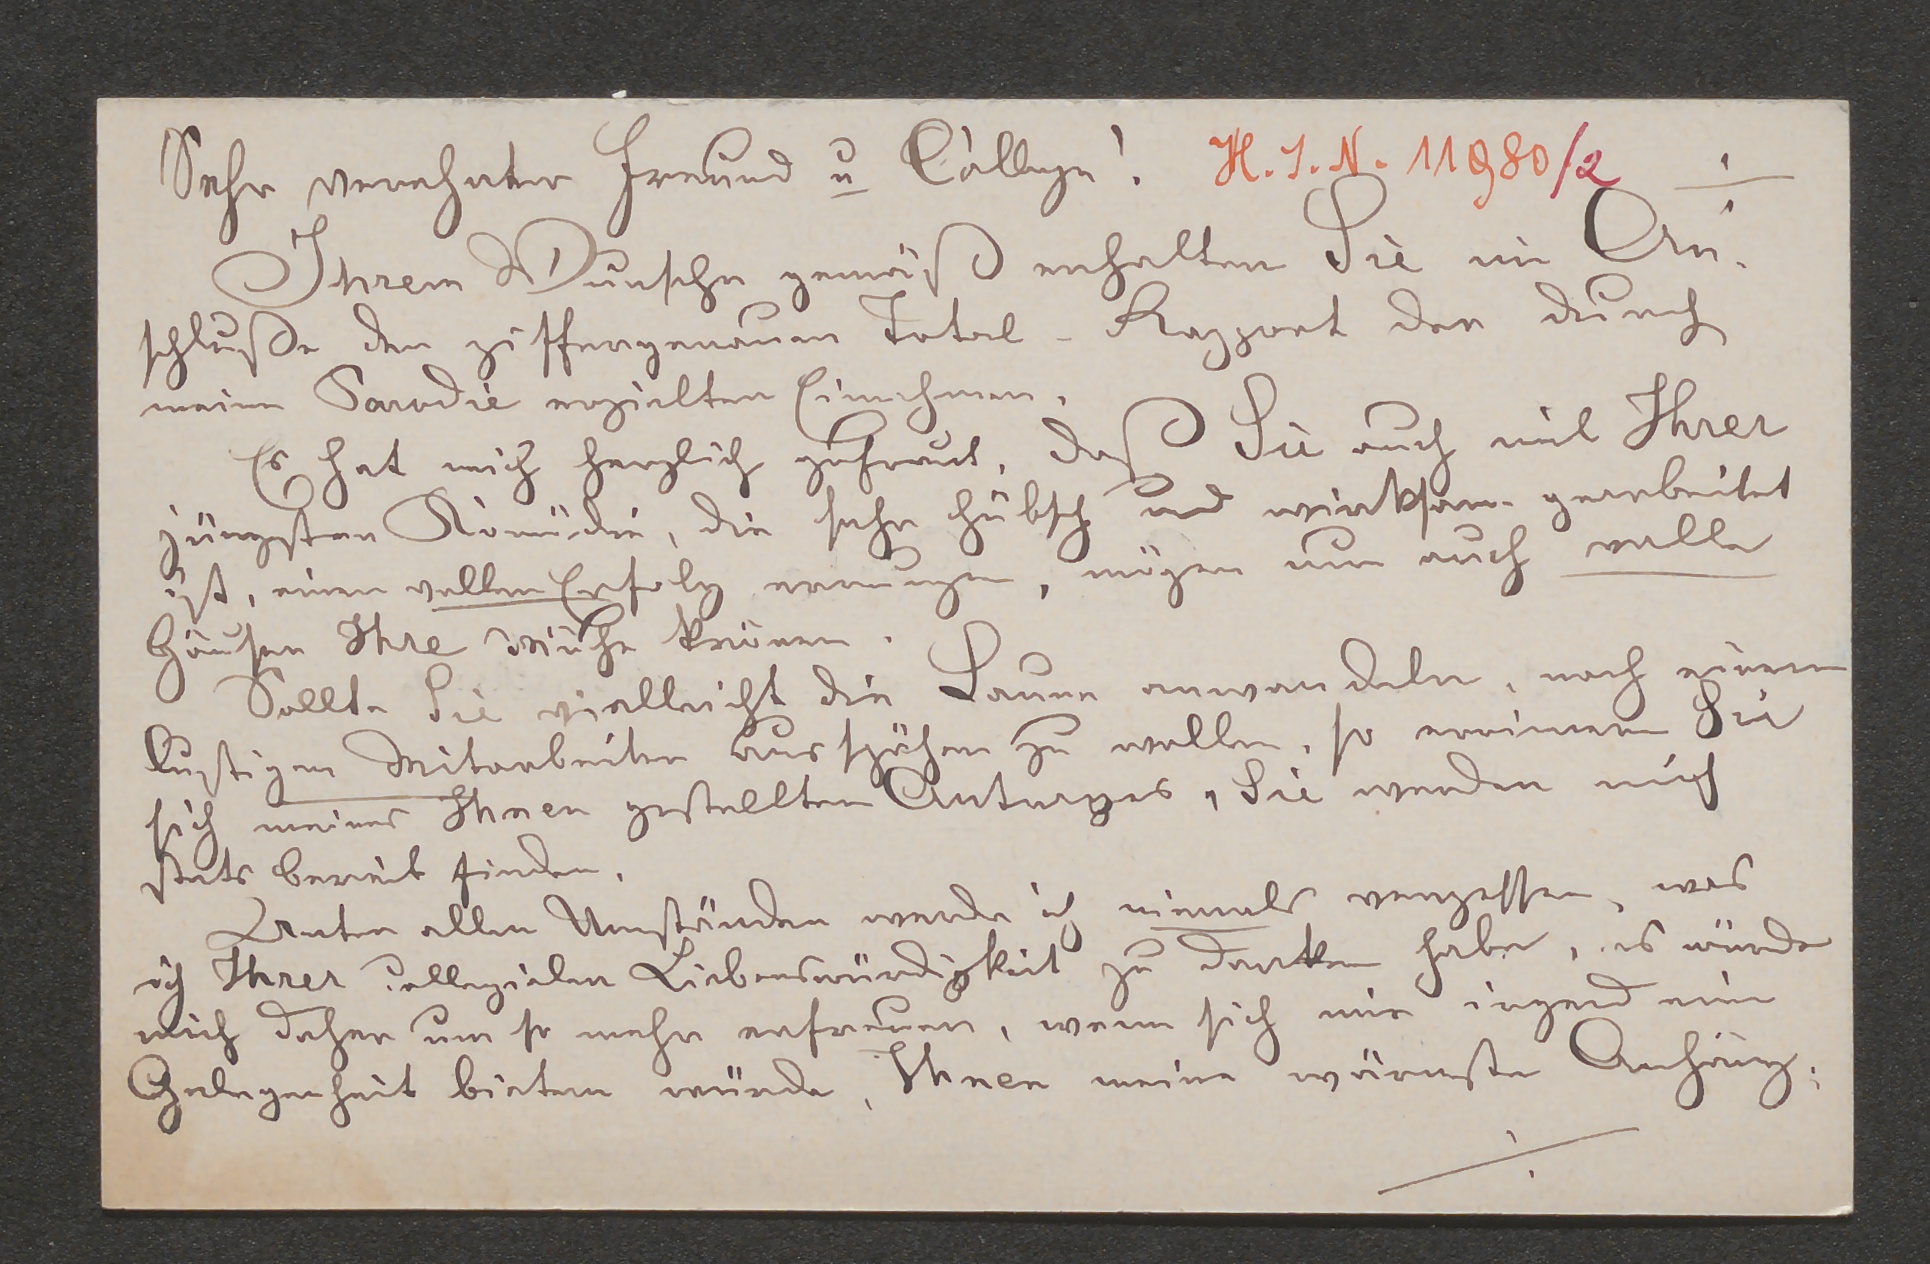 Sehr verehrter Freund u College! H. I. N. 11980/2
Ihrem Wunsche gemäß erhalten Sie im An-
schluße den ziffergenauen Total-Rapport der durch
meine Parodie erzielten Einnahmen.
Es hat mich herzlich gefreut, daß Sie auch mit Ihrer
jüngsten Komödie, die sehr hübsch und wirksam gearbeitet
ist, einen vollen Erfolg errungen, mögen nun auch volle
Häuser Ihre Mühe krönen.
Sollte Sie vielleicht die Laune anwandeln, nach einem
lustigen Mitarbeiter ausspähen zu wollen, so erinnern Sie
sich meines Ihnen gestellten Antrages, Sie werden mich
stets bereit finden.
Unter allen Umständen werde ich niemals vergessen, was
ich Ihrer collegialen Liebenswürdigkeit zu danken habe, es würde
mich daher um so mehr erfreuen, wenn sich mir irgend eine
Gelegenheit bieten würde, Ihnen meine wärmste Anhäng-